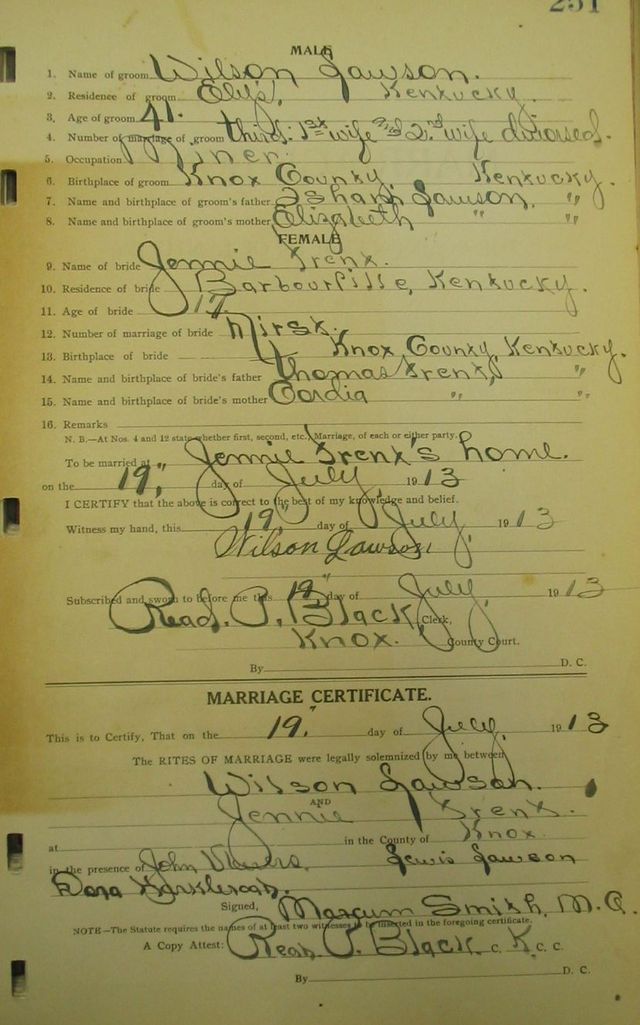 251
MALE
1. Name of groom Wilson Lawson.
2. Residence of groom Elys, Kentucky.
3. Age of groom 41.
4. Number of marriage of groom third: 1st wife and 2nd wife divorsed.
5. Occupation Miner.
6. Birthplace of groom Knox County, Kentucky.
7. Name and birthplace of groom's father Isham Lawson, "
8. Name and birthplace of groom's mother Elizabeth " "
FEMALE
9. Name of bride Jennie Trent.
10. Residence of bride Barbourville, Kentucky.
11. Age of bride 17.
12. Number of marriage of bride First.
13. Birthplace of bride Knox County, Kentucky.
14. Name and birthplace of bride's father Thomas Trent, "
15. Name and birthplace of bride's mother Cordia " "
16. Remarks
N. B.—At Nos. 4 and 12 state whether first, second, etc., Marriage, of each or either party.
To be married at Jennie Trent's home.
on the 19," day of July, 1913
I CERTIFY that the above is correct to the best of my knowledge and belief.
Witness my hand, this 19" day of July, 1913
Wilson Lawson
Subscribed and sworn to before me this 19," day of July, 1913
Read. P. Black, Clerk,
Knox. County Court.
By D. C.
MARRIAGE CERTIFICATE.
This is to Certify, That on the 19," day of July, 1913
The RITES OF MARRIAGE were legally solemnized by me between
Wilson Lawson.
AND
Jennie Trent.
at in the County of Knox.
in the presence of John Lewis Lawson
Dora
Signed, Marcum Smith, M. G.
NOTE—The Statute requires the names of at least two witnesses to be inserted in the foregoing certificate.
A Copy Attest: Read P. Black C. K. C. C.
By D. C.